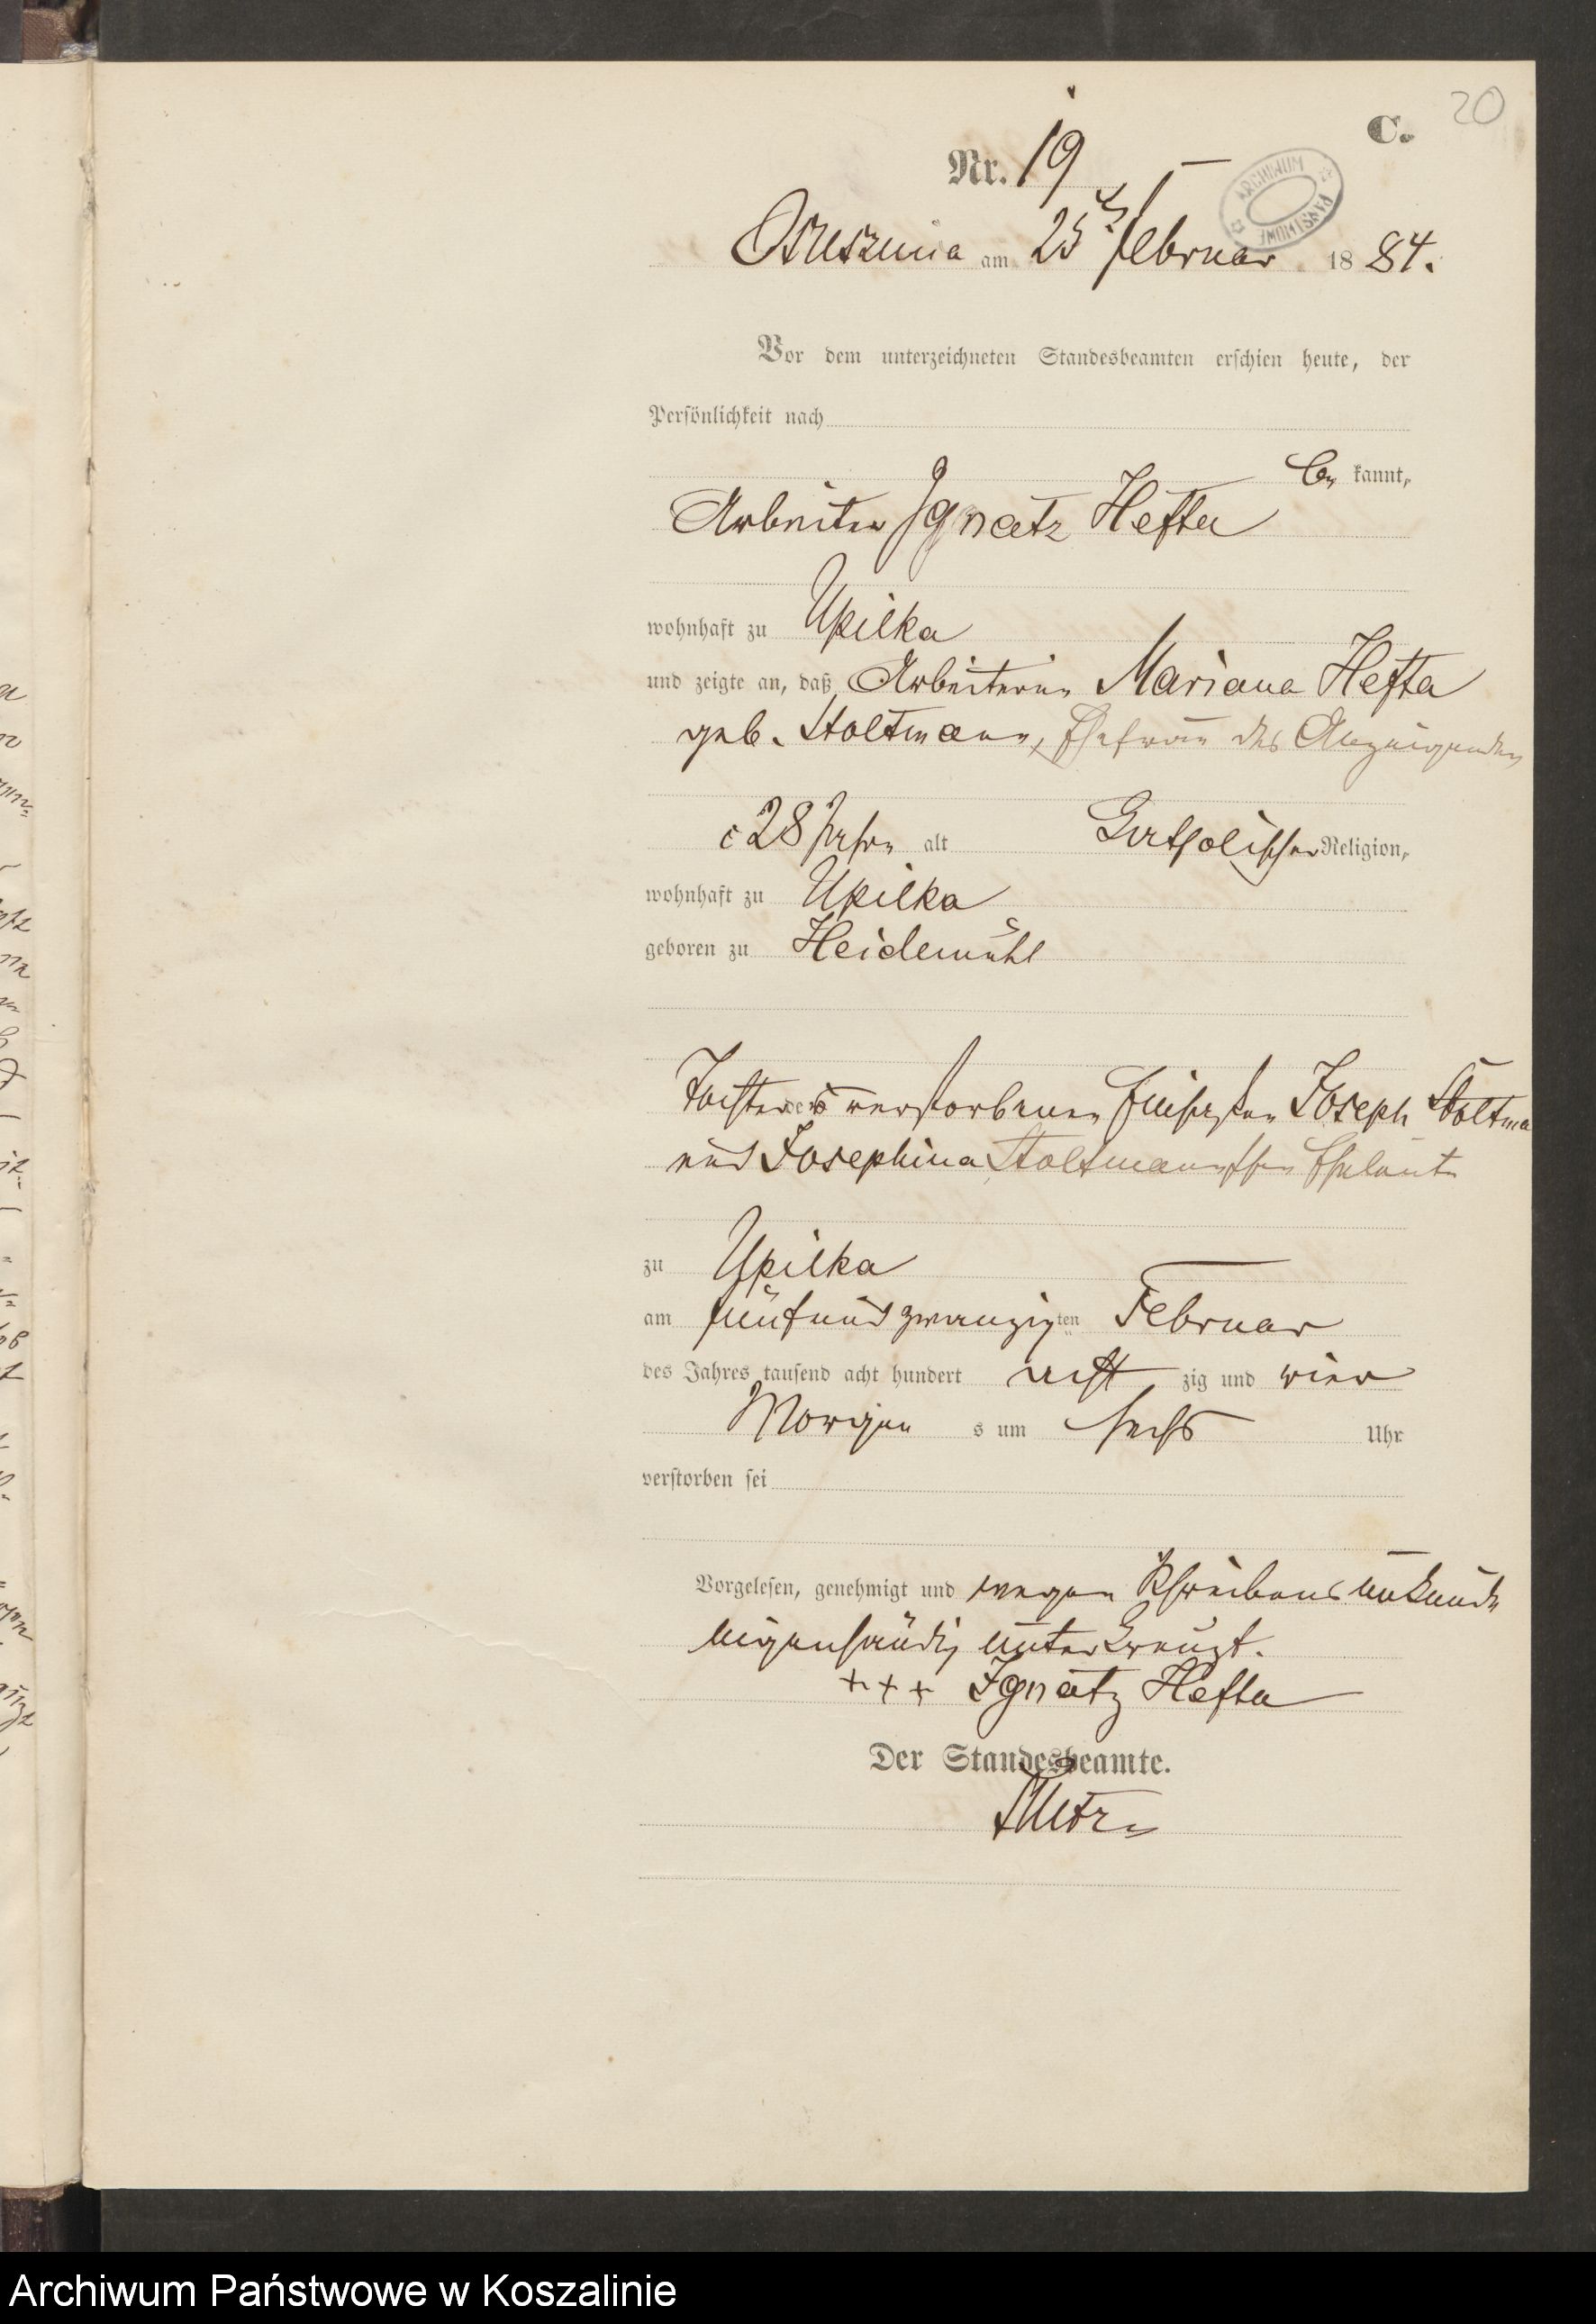 20
C.
Nr. 19
ARCHIWUM PAŃSTWOWE
Osuszniza am 25ten Februar 1884.
Vor dem unterzeichneten Standesbeamten erschien heute, der
Persönlichkeit nach
be kannt,
Arbeiter Ignatz Hefta
wohnhaft zu Upilka
und zeigte an, daß Arbeiterin Mariana Hefta
geb. Stoltmann, Ehefrau des Anzeigenden
c 28 Jahre alt Katholischer Religion,
wohnhaft zu Upilka
geboren zu Heidemühl
Tochter der verstorbenen Joseph Stoltma
und Josephina Stoltmannschen Eheleute
zu Upilka
am fünfundzwanzigten Februar
des Jahres tausend acht hundert acht zig und vier
Morgen s um sechs Uhr
verstorben sei
Vorgelesen, genehmigt und wegen Schreibens unkunde
eigenhändig unterkreuzt.
+ + + Ignatz Hefta
Der Standesbeamte.
Archiwum Państwowe w Koszalinie